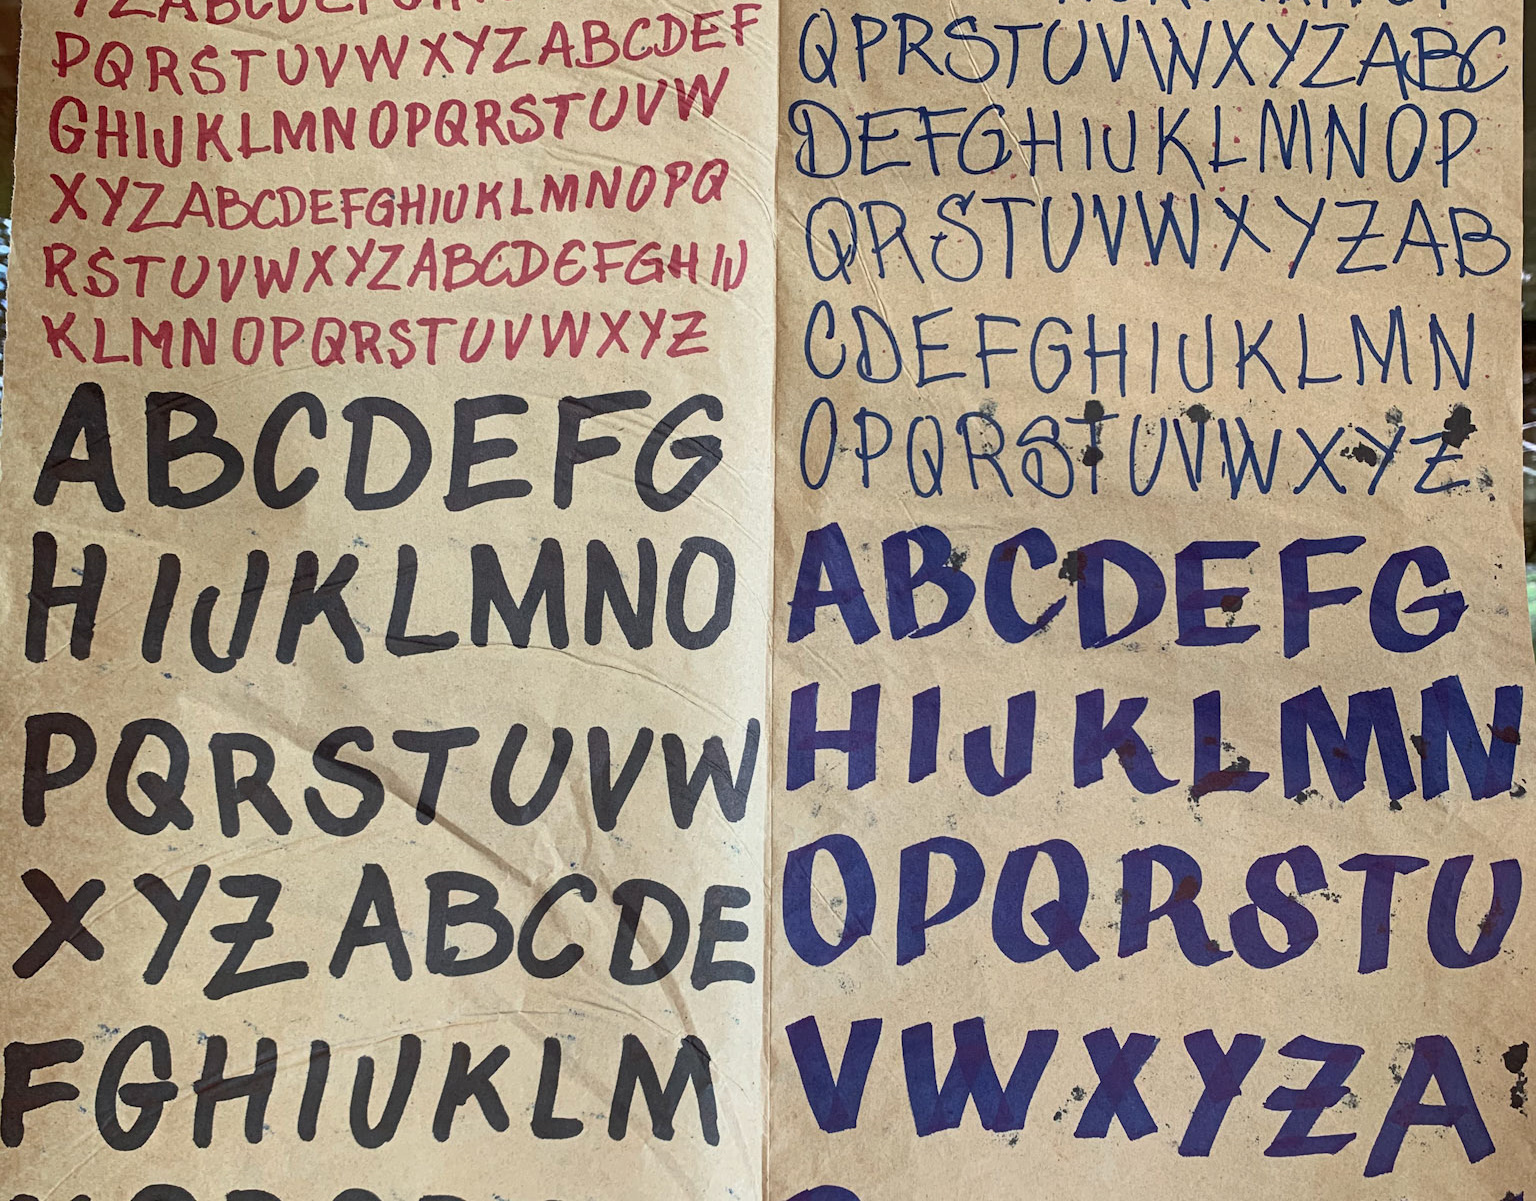 YZABCDEFGH
PQRSTUVWXYZABCDEF
GHIJKLMNOPQRSTUVW
XYZABCDEFGHIJKLMNOPQ
RSTUVWXYZABCDEFGHIJ
KLMNOPQRSTUVWXYZ
ABCDEFG
HIJKLMNO
PQRSTUVW
XYZABCDE
FGHIJKLM
QPRSTUVWXYZABC
DEFGHIJKLMNOP
QRSTUVWXYZAB
CDEFGHIJKLMN
OPQRSTUVWXYZ
ABCDEFG
HIJKLMN
OPQRSTU
VWXYZA